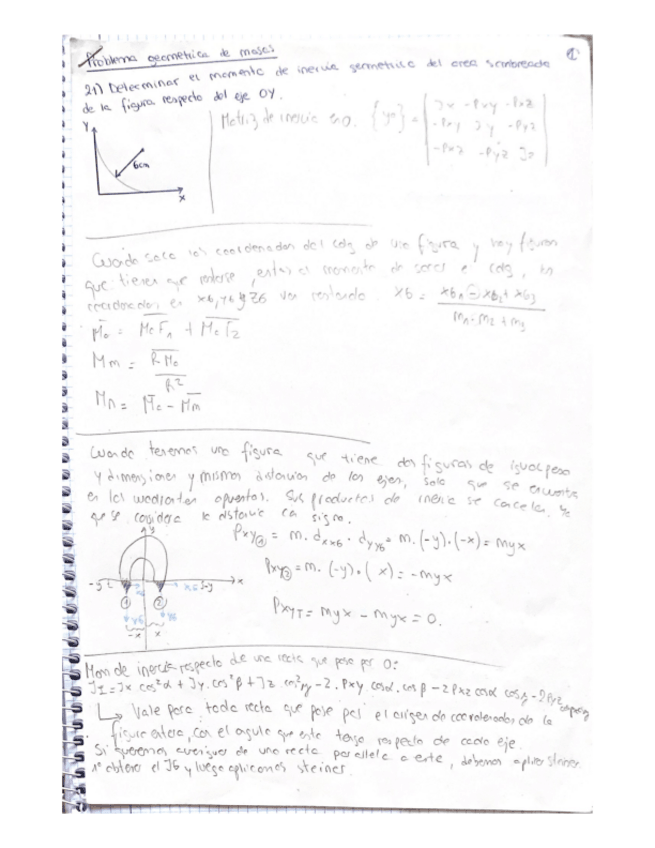 Problema geometrica de masas
1
21) Determinar el momento de inercia geometrica del area sombreada
de la figura respecto del eje OY.
Y
6cm
X
Matriz de inercia en O. {Jo} = Jx -Pxy -Pxz
-Pxy Jy -Pyz
-Pxz -Pyz Jz
Cuando saco las coordenadas del cdg de una figura y hay figuras
que tienen que restarse, entonces el momento de sacar el cdg, las
coordenadas en XG, YG y ZG van restando. XG =
m1 - m2 + m3
Mo = MoF1 + MoF2
Mm = R Mo
R²
Mn = Mo - Mm
Cuando tenemos una figura que tiene dos figuras de igual peso
y dimensiones y misma distancia de los ejes, solo que se encuentra
en los cuadrantes opuestos. Sus productos de inercia se cancelan, ya
que se considera la distancia con signo.
y
x
1
2
-x
x
Pxy① = m. dxxG . dyyG = m. (-y).(-x) = myx
Pxy② = m. (-y).(x) = -myx
PxyT = myx - myx = 0.
Mom de inercia respecto de una recta que pase por O:
JI = Jx cos²α + Jy. cos²β + Jz cos²γ - 2. Pxy cosα. cos β - 2Pxz cosα cosγ - 2Pyz
Vale para toda recta que pase por el origen de coordenadas de la
figura entera, con el angulo que este tenga respecto de cada eje.
Si queremos averiguar de una recta paralela a este, debemos aplicar steiner.
1º obtener el JG y luego aplicamos steiner.